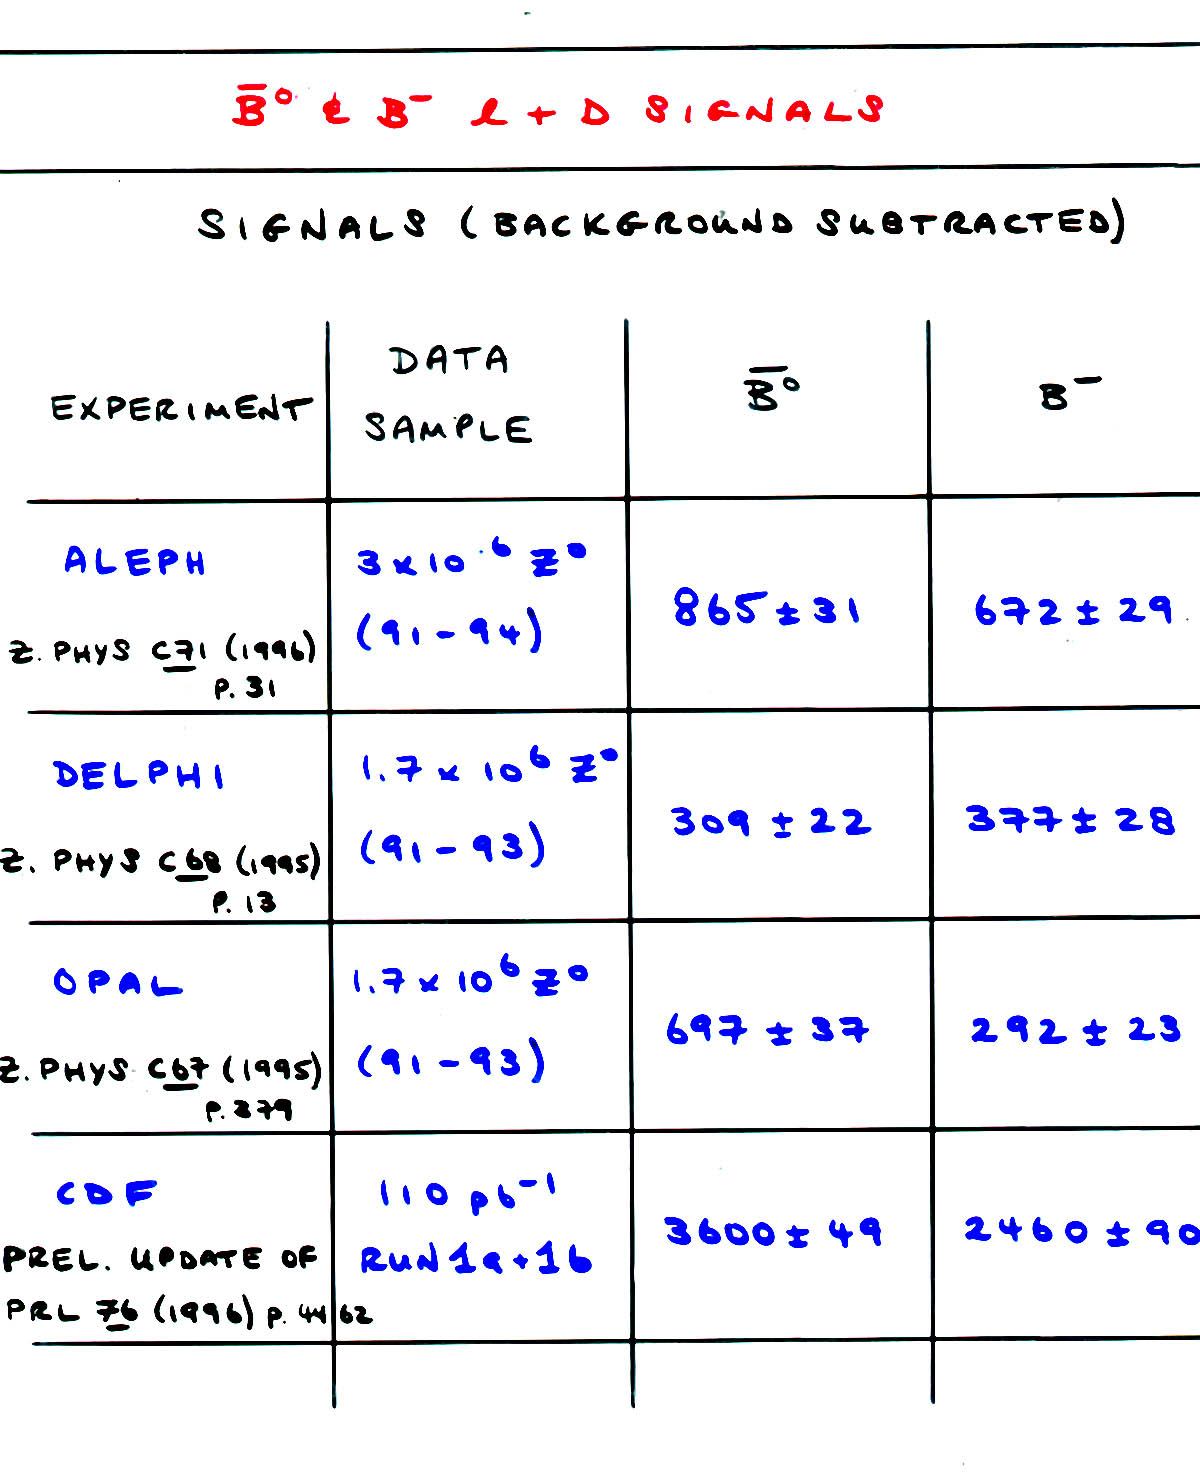 B̄⁰ & B⁻ ℓ + D SIGNALS
SIGNALS (BACKGROUND SUBTRACTED)
EXPERIMENT
DATA
SAMPLE
B̄⁰
B⁻
ALEPH
Z. PHYS C71 (1996)
P. 31
3 x 10⁶ Z⁰
(91 - 94)
865 ± 31
672 ± 29
DELPHI
Z. PHYS C68 (1995)
P. 13
1.7 x 10⁶ Z⁰
(91 - 93)
309 ± 22
377 ± 28
OPAL
Z. PHYS C67 (1995)
P. 379
1.7 x 10⁶ Z⁰
(91 - 93)
697 ± 37
292 ± 23
CDF
PREL. UPDATE OF
PRL 76 (1996) P. 4462
110 pb⁻¹
RUN 1a + 1b
3600 ± 49
2460 ± 90